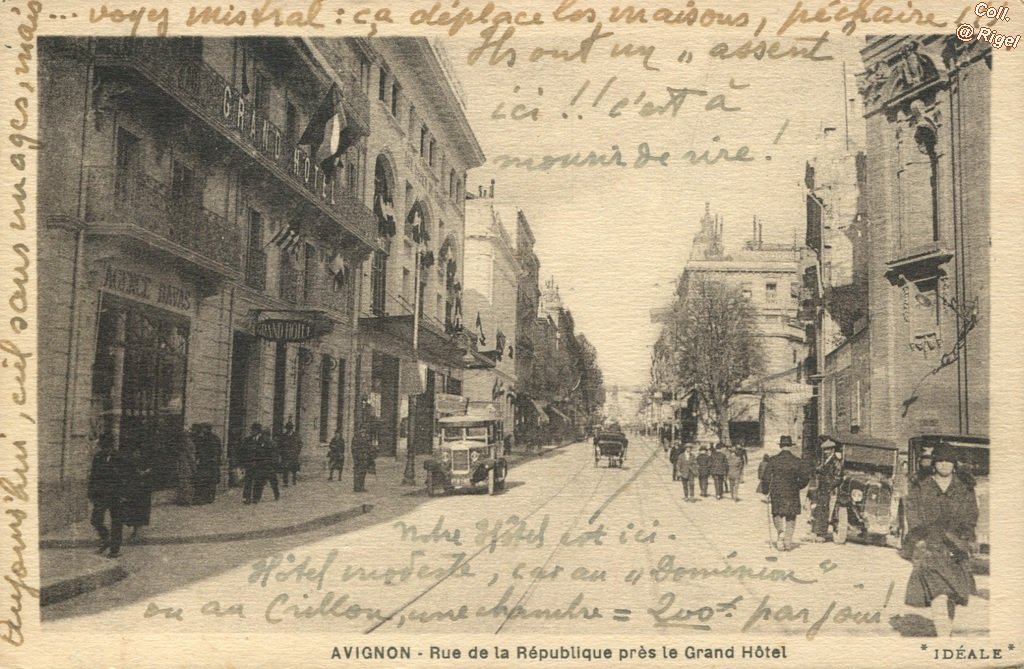 ... voyez mistral : ça déplace les maisons, péchaire !
Coll.
@ Rigel
Ils ont un „ assent
ici !! c'est à
mourir de rire !
Aujourd'hui, ciel sans nuages, mais
GRAND HOTEL
AGENCE HAVAS
GRAND HOTEL
Notre Hôtel est ici.
Hôtel modeste, car au „ Dominion "
ou au Crillon, une chambre = 200f. par jour !
AVIGNON - Rue de la République près le Grand Hôtel
* IDÉALE *